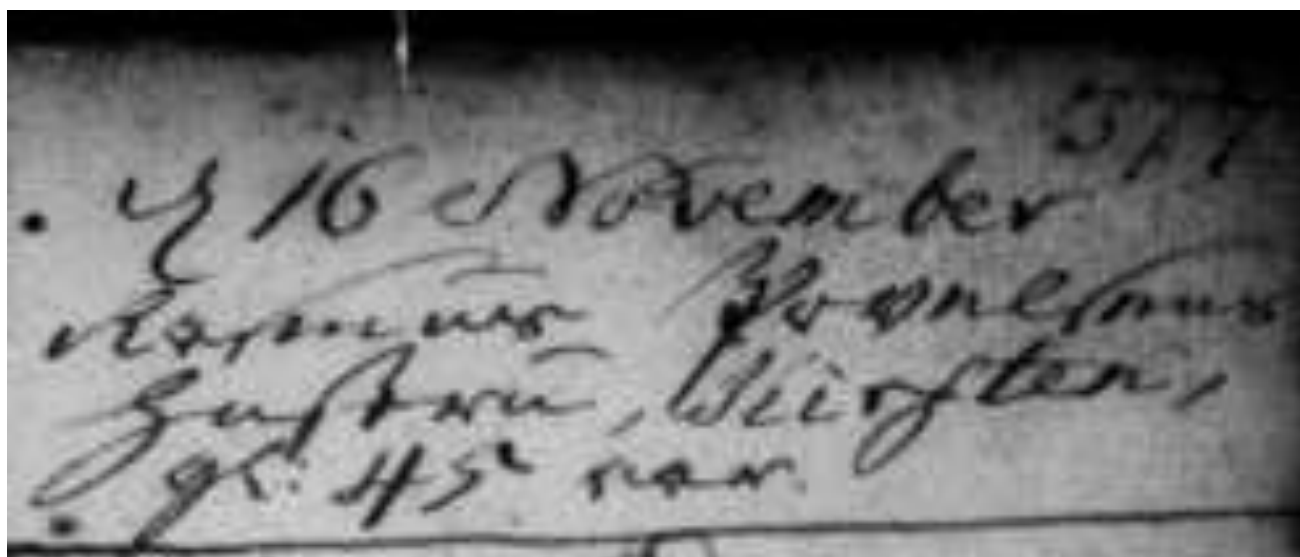 577
d 16 November
Rasmus
Hustru, Kirsten,
gl: 45 aar.